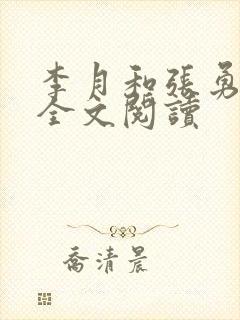 李月和張勇
全文閱讀
喬清晨